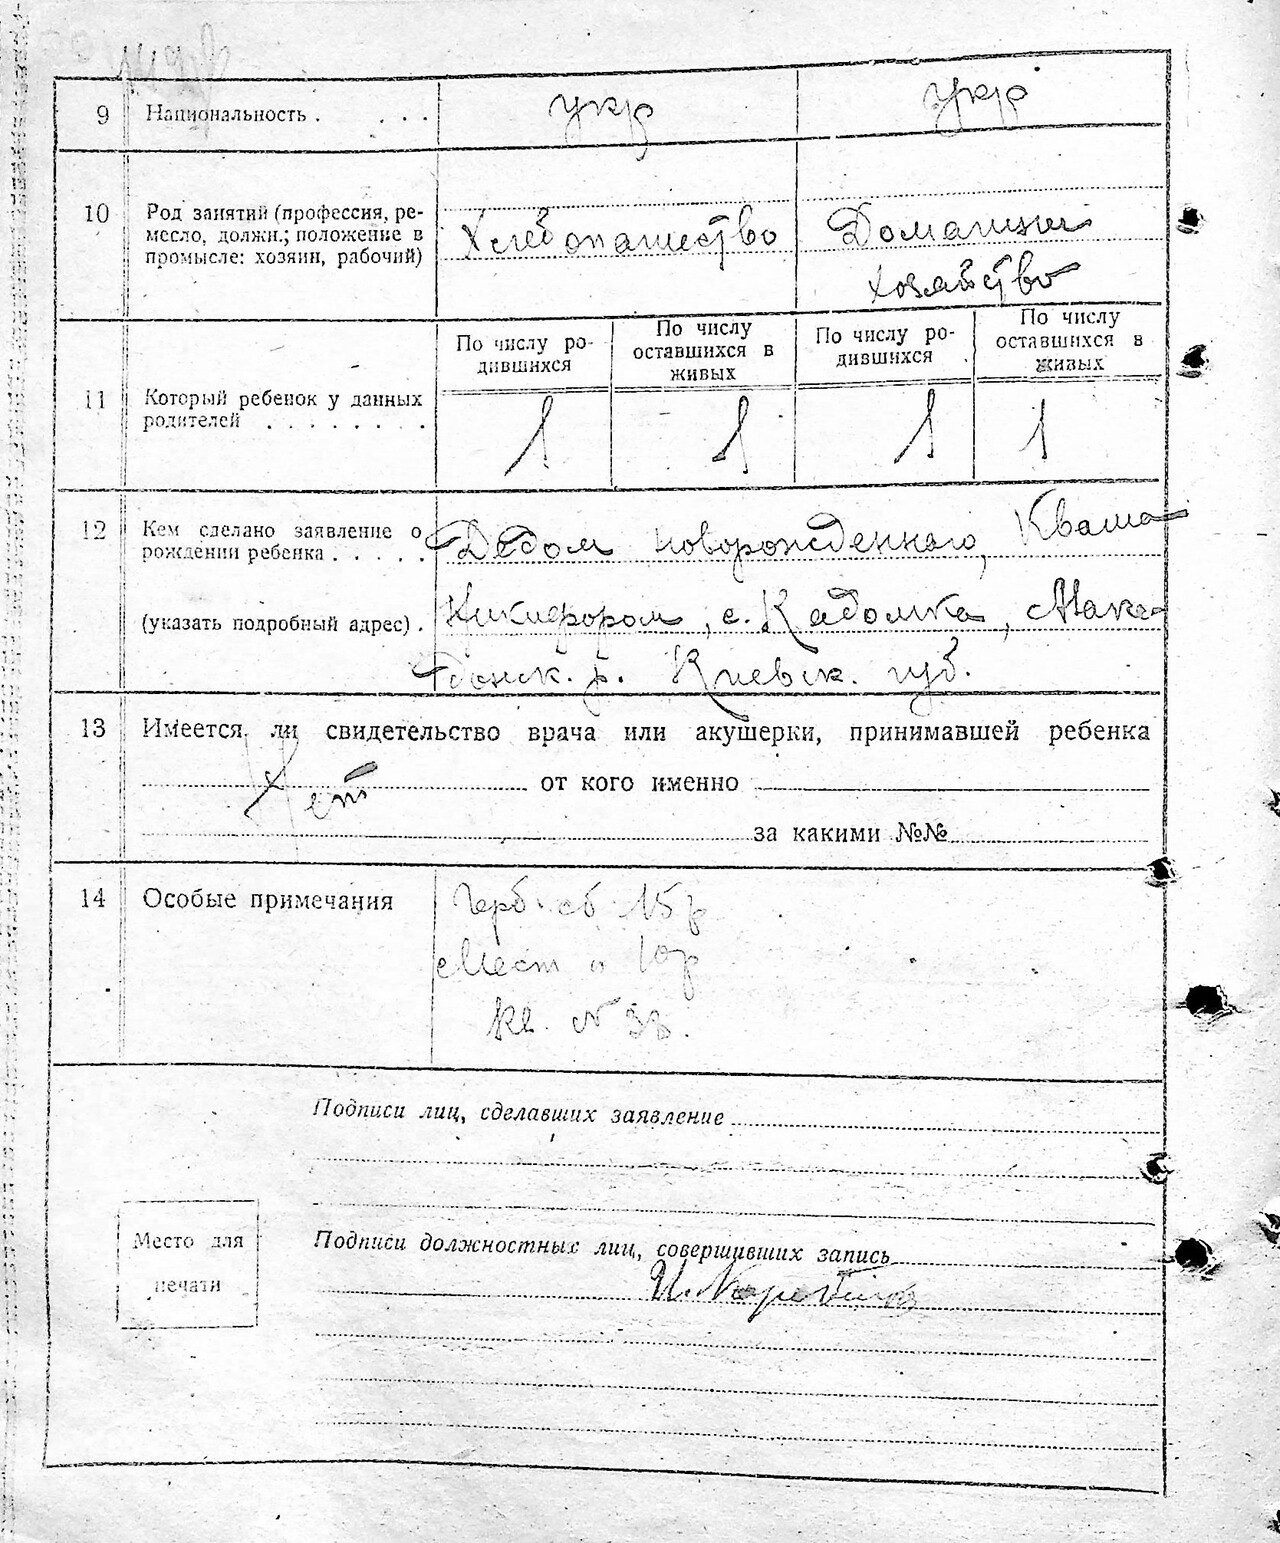 9 Национальность . . . . укр укр
10 Род занятий (профессия, ре-
месло, должн.; положение в
промысле: хозяин, рабочий)
Хлебопашество Домашнее
хозяйство
По числу ро-
дившихся
По числу
оставшихся в
живых
По числу ро-
дившихся
По числу
оставшихся в
живых
11 Который ребенок у данных
родителей . . . . . . . .
1 1 1 1
12 Кем сделано заявление о
рождении ребенка . . . .
Дедом новорожденного, Кваша
(указать подробный адрес) . Никифором, с. Кадомка, Мака-
донск. р. Киевск. губ.
13 Имеется ли свидетельство врача или акушерки, принимавшей ребенка
Нет от кого именно
за какими №№
14 Особые примечания Герб. сб 15 р
Мест " 10 р
Кв. №
Подписи лиц, сделавших заявление
Место для
печати
Подписи должностных лиц, совершивших запись
И.